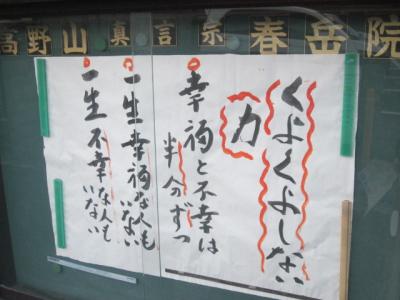 高野山真言宗春岳院
くよくよしない
力
幸福と不幸は
半分ずつ
一生幸福な人も
いない
一生不幸な人も
いない